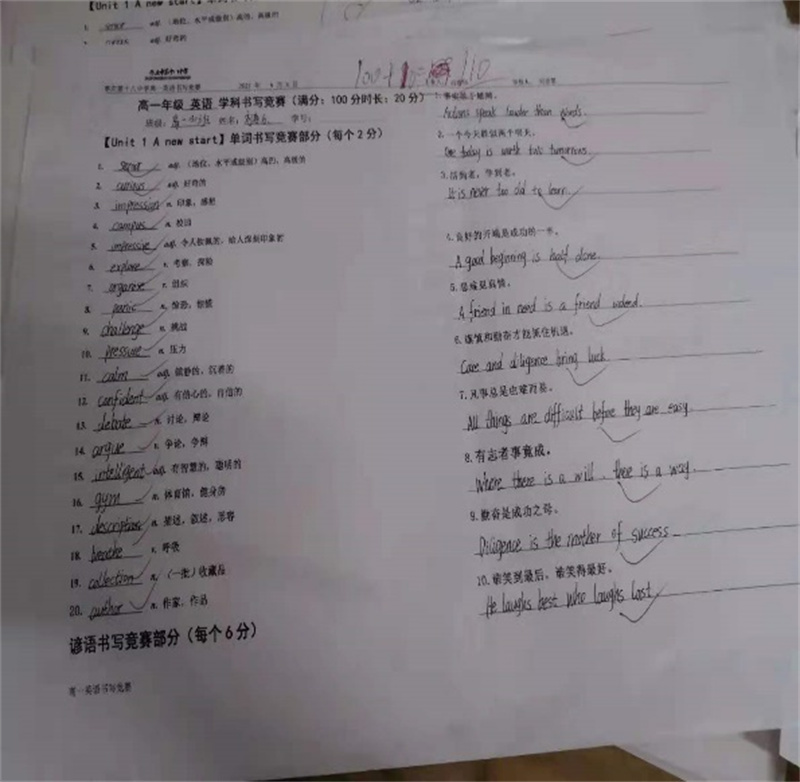 【Unit 1 A new start】
adj. (地位、水平或级别)高的，高级的
adj. 好奇的
100+10= 110
2021 年 9 月
高一年级 英语 学科书写竞赛（满分：100分时长：20分）
班级： 姓名： 学号：
【Unit 1 A new start】单词书写竞赛部分（每个2分）
1. senior adj.（地位、水平或级别）高的，高级的
2. curious adj. 好奇的
3. impression n. 印象，感想
4. campus n. 校园
5. impressive adj. 令人钦佩的，给人深刻印象的
6. explore v. 考察，探险
7. organise v. 组织
8. panic n. 惊恐，惊慌
9. challenge n. 挑战
10. pressure n. 压力
11. calm adj. 镇静的，沉着的
12. confident adj. 有信心的，自信的
13. debate n. 讨论，辩论
14. argue v. 争论，争辩
15. intelligent adj. 有智慧的，聪明的
16. gym n. 体育馆，健身房
17. description n. 描述，叙述，形容
18. breathe v. 呼吸
19. collection n.（一批）收藏品
20. author n. 作家，作品
谚语书写竞赛部分（每个6分）
高一英语书写竞赛
1. 事实胜于雄辩。
Actions speak louder than words.
2. 一个今天胜似两个明天。
One today is worth two tomorrows.
3. 活到老，学到老。
It is never too old to learn.
4. 良好的开端是成功的一半。
A good beginning is half done.
5. 患难见真情。
A friend in need is a friend indeed.
6. 谨慎和勤奋方能抓住机遇。
Care and diligence bring luck.
7. 凡事总是由难而易。
All things are difficult before they are easy.
8. 有志者事竟成。
Where there is a will, there is a way.
9. 勤奋是成功之母。
Diligence is the mother of success.
10. 谁笑到最后，谁笑得最好。
He laughs best who laughs last.